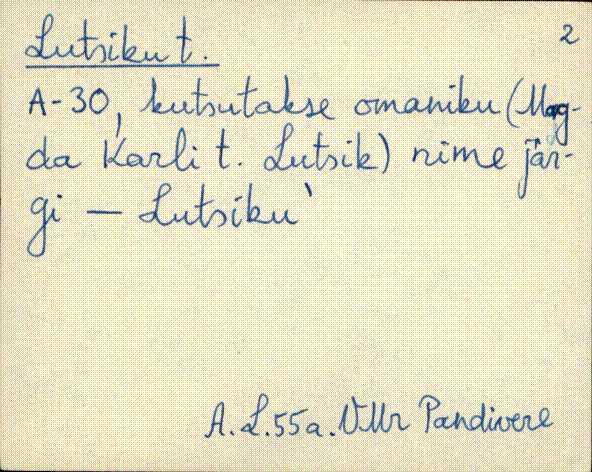 Lutsiku t.
2
A-30, kutsutakse omaniku (Mag-
da Karli t. Lutsik) nime jär-
gi — Lutsiku`
A.L.55a. VMr Pandivere